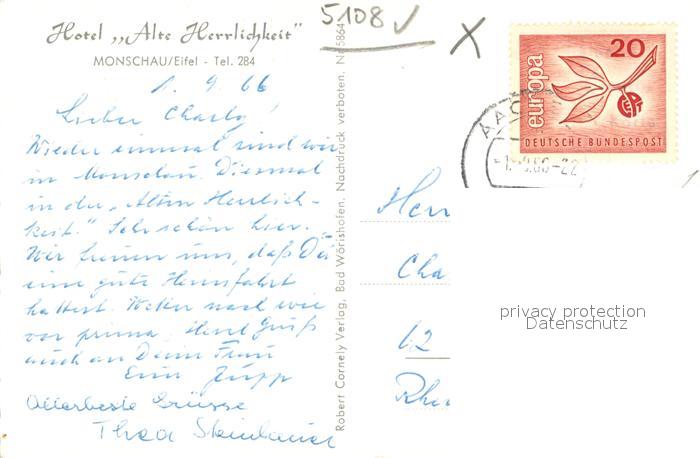 5108
Hotel „Alte Herrlichkeit"
MONSCHAU/Eifel - Tel. 284
1. 9. 66
Lieber Charly!
Wieder einmal sind wir
in Monschau. Diesmal
in der „Alten Herrlich-
keit." Sehr schön hier.
Wir freuen uns, daß Du
eine gute Heimfahrt
hattest. Wetter nach wie
vor prima. Herzl. Grüß
auch an Deine Frau
Euer Jupp
Allerbeste Grüsse
Thea Steinbauer
Robert Cornely Verlag, Bad Wörishofen, Nachdruck verboten. Nr. 5864
europa
20
CEPT
DEUTSCHE BUNDESPOST
AAC
Herr
Cha
62
Rhei
privacy protection
Datenschutz